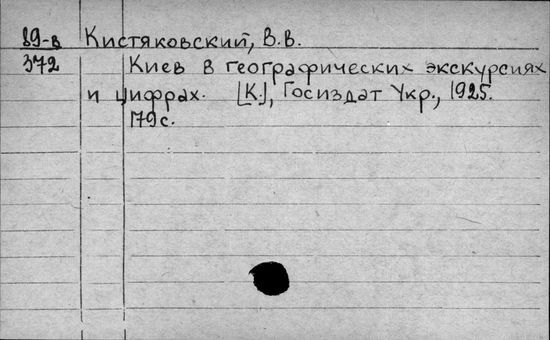 89-в Кистяковский, В.В.
372 Киев в географических экскурсиях
и цифрах. [К.], Госиздат Укр., 1925.
179 с.